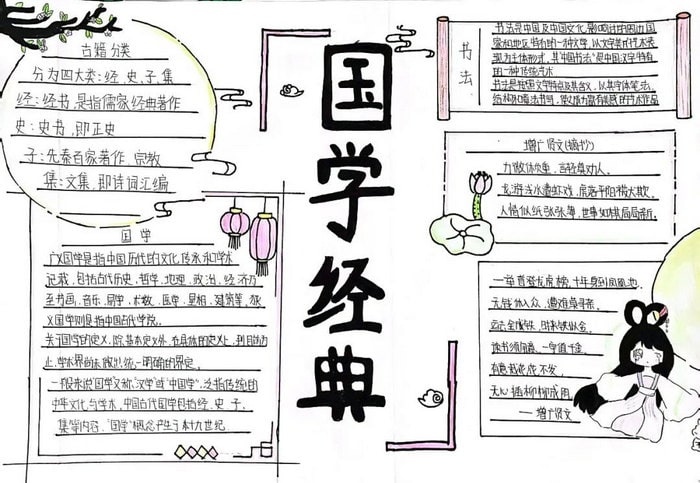 国学经典
古籍分类
分为四大类:经、史、子、集
经:经书,是指儒家经典著作
史:史书,即正史
子:先秦百家著作、宗教
集:文集,即诗词汇编
国学
广义国学是指中国历代的文化传承和学术
记载,包括古代历史,哲学,地理,政治,经济乃
至书画,音乐,易学,术数,医学,星相,建筑等,狭
义国学则是指中国古代学院。
关于国学的定义,除基本定义外,在具体的定义上,到目前为
止,学术界尚未做出统一明确的界定。
一般来说"国学"又称"汉学"或"中国学",泛指传统的
中华文化与学术,中国古代国学包括经、史、子、
集等内容,"国学"概念产生于本十九世纪
书法
书法是中国及中国文化影响过的周边国
家和地区特有的一种文字,以文字其的艺术表
现为主体形式,其"中国书法"是中国汉字特有
的一种传统艺术
书法是按照文字特点及其含义,以其字体笔法、
结构和
的艺术作品
增广贤文(摘抄)
力微休负重,言轻莫劝人。
龙游浅水遭虾戏,虎落平阳被犬欺。
人情似纸张张薄,世事如棋局局新。
一举首登龙虎榜,十年身到凤凰池。
无钱休入众,遭难莫寻亲。
运去金成铁,时来铁似金。
读书须用意,一字值千金。
有意栽花花不发,
无心插柳柳成用。
——增广贤文